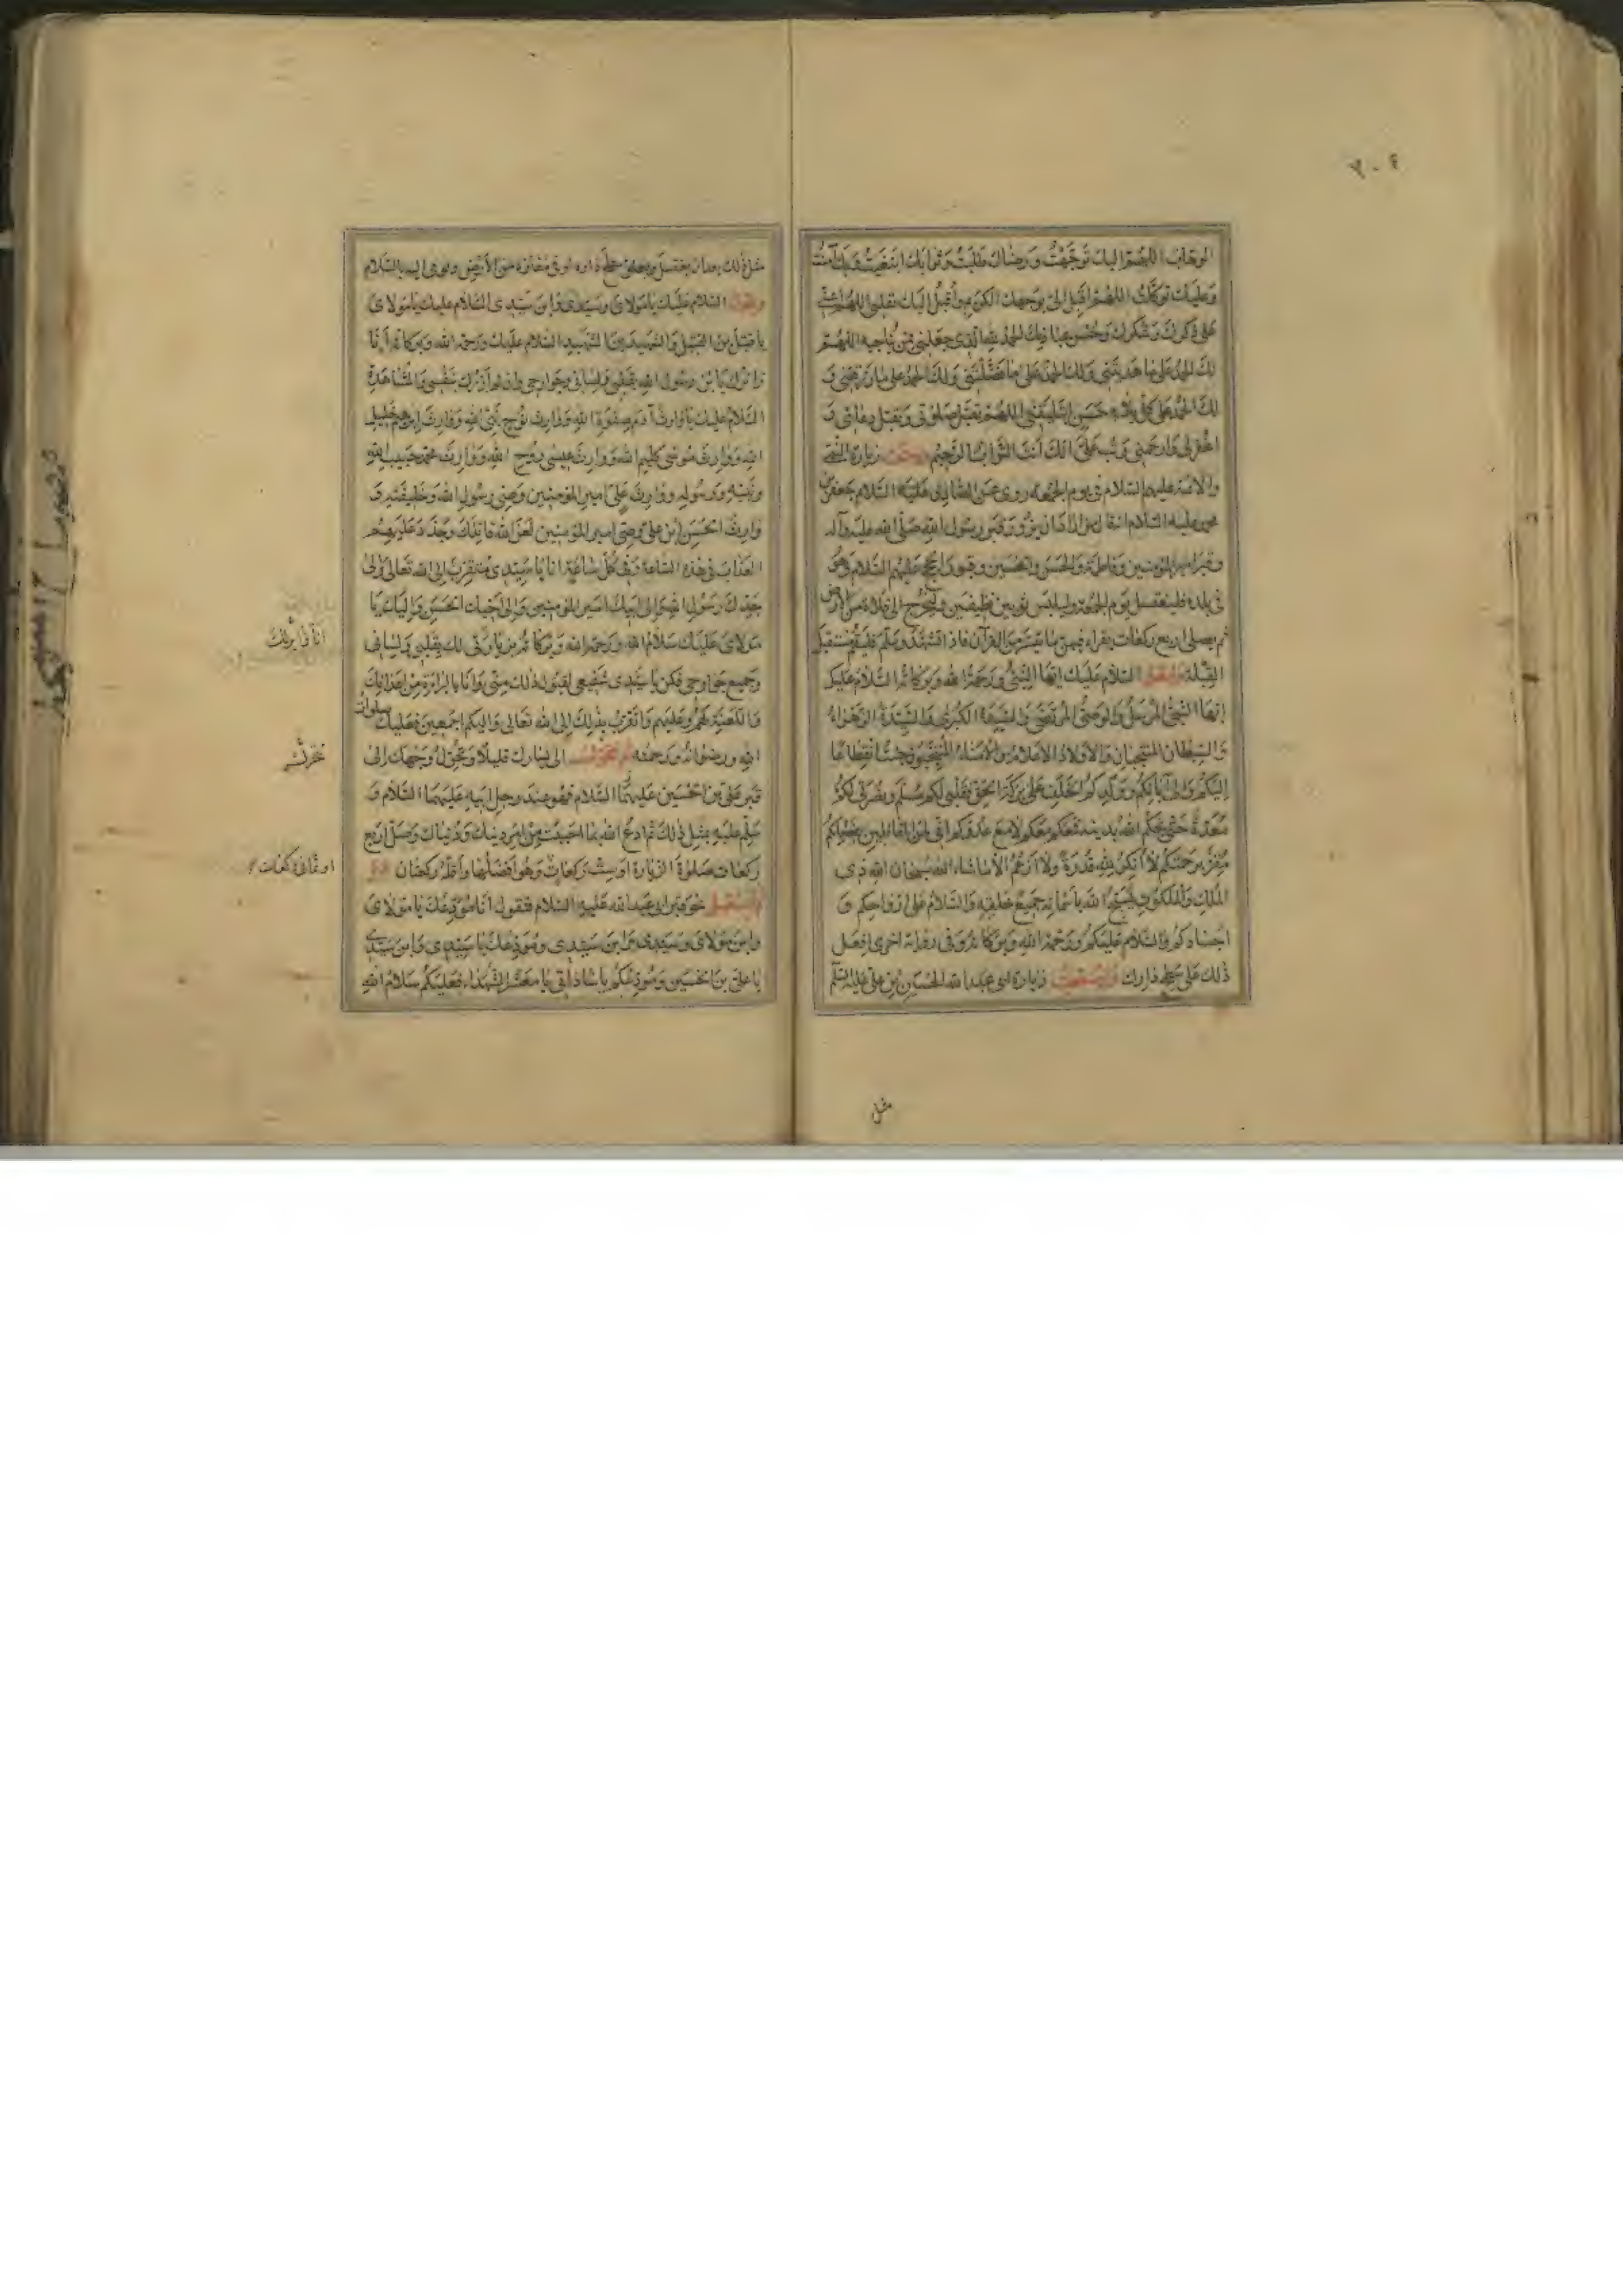 ٢٠٤
الوهاب اللهم اليك توجهت ورضاك طلبت وثوابك ابتغيت وبك آمنت
وعليك توكلت اللهم اقبل الي بوجهك الكريم واقبل اليك بقلبي اللهم اعني
على ذكرك وشكرك وحسن عبادتك الحمد لله الذي جعلني ممن يناجيه اللهم
لك الحمد على ما هديتني ولك الحمد على ما فضلتني ولك الحمد على ما رزقتني و
لك الحمد على كل بلاء حسن ابتليتني اللهم تقبل صلوتي وتقبل دعائي و
اغفر لي وارحمني وتب علي انك انت التواب الرحيم زيارة النبي
والائمة عليهم السلام في يوم الجمعة روي عن الصادق عليه السلام جعفر بن
محمد عليه السلام انه قال من اراد ان يزور قبر رسول الله صلى الله عليه وآله
وقبر امير المؤمنين وفاطمة والحسن والحسين وقبور الحجج عليهم السلام وهو
في بلده فليغتسل يوم الجمعة وليلبس ثوبين نظيفين وليخرج الى فلاة من الارض
ثم يصلي اربع ركعات يقراء فيهن ما تيسر من القرآن فاذا تشهد وسلم فليقم مستقبل
القبلة وليقل السلام عليك ايها النبي ورحمة الله وبركاته السلام عليك
ايها النبي المرسل والوصي المرتضى والسيدة الكبرى والسيدة الزهراء
والسبطان المنتجبان والاولاد الاعلام والامناء المنتجبون جئت انقطاعا
اليكم والى آبائكم وولدكم الخلف على بركة الحق فقلبي لكم مسلم ونصرتي لكم
معدة حتى يحكم الله بدينه فمعكم معكم لا مع عدوكم اني لمن القائلين بفضلكم
مقر برجعتكم لا انكر لله قدرة ولا ازعم الا ما شاء الله سبحان الله ذي
الملك والملكوت يسبح الله باسمائه جميع خلقه والسلام على ارواحكم و
اجسادكم والسلام عليكم ورحمة الله وبركاته وفي رواية اخرى افعل
ذلك على سطح دارك زيارة ابي عبد الله الحسين بن علي عليه السلم
مثل
مثل ذلك بعد ان يغتسل ويعلو سطح داره او في مفازة من الأرض ويومئ اليه بالسلام
ويقول السلام عليك يا مولاي وسيدي وابن سيدي السلام عليك يا مولاي
يا قتيل بن القتيل والشهيد بن الشهيد السلام عليك ورحمة الله وبركاته انا
زائرك يا بن رسول الله بقلبي ولساني وجوارحي وان لم ازرك بنفسي والمشاهدة
السلام عليك يا وارث آدم صفوة الله ووارث نوح نبي الله ووارث ابرهيم خليل
الله ووارث موسى كليم الله ووارث عيسى روح الله ووارث محمد حبيب الله
ونبيه ورسوله ووارث علي امير المؤمنين وصي رسول الله وخليفته و
وارث الحسن بن علي وصي امير المؤمنين لعن الله قاتلك وجدد عليهم
العذاب في هذه الساعة وفي كل ساعة انا يا سيدي متقرب الى الله تعالى والى
جدك رسول الله والى ابيك امير المؤمنين والى اخيك الحسن واليك يا
مولاي عليك سلام الله ورحمة الله وبركاته بزيارتي لك بقلبي ولساني
وجميع جوارحي فكن يا سيدي شفيعي لقبول ذلك مني وانا بالبراءة من اعدائك
واللعنة لهم وعليهم واتقرب بذلك الى الله تعالى واليكم اجمعين فعليك صلوات
الله ورضوانه ورحمته ثم تحول الى يسارك قليلا وتحول وجهك الى
قبر علي بن الحسين عليهما السلام فهو عند رجل ابيه عليهما السلام و
سلم عليه بمثل ذلك ثم ادع الله بما احببت من امر دينك ودنياك وصل اربع
ركعات صلوة الزيارة او ست ركعات وهو افضلها واقله ركعتان ثم
تستقبل نحو قبر ابي عبد الله عليه السلام فتقول انا مودعك يا مولاي
وابن مولاي وسيدي وابن سيدي ومودعك يا سيدي وابن سيدي
يا علي بن الحسين ومودعكم يا ساداتي يا معشر الشهداء فعليكم سلام الله
او ثماني ركعات